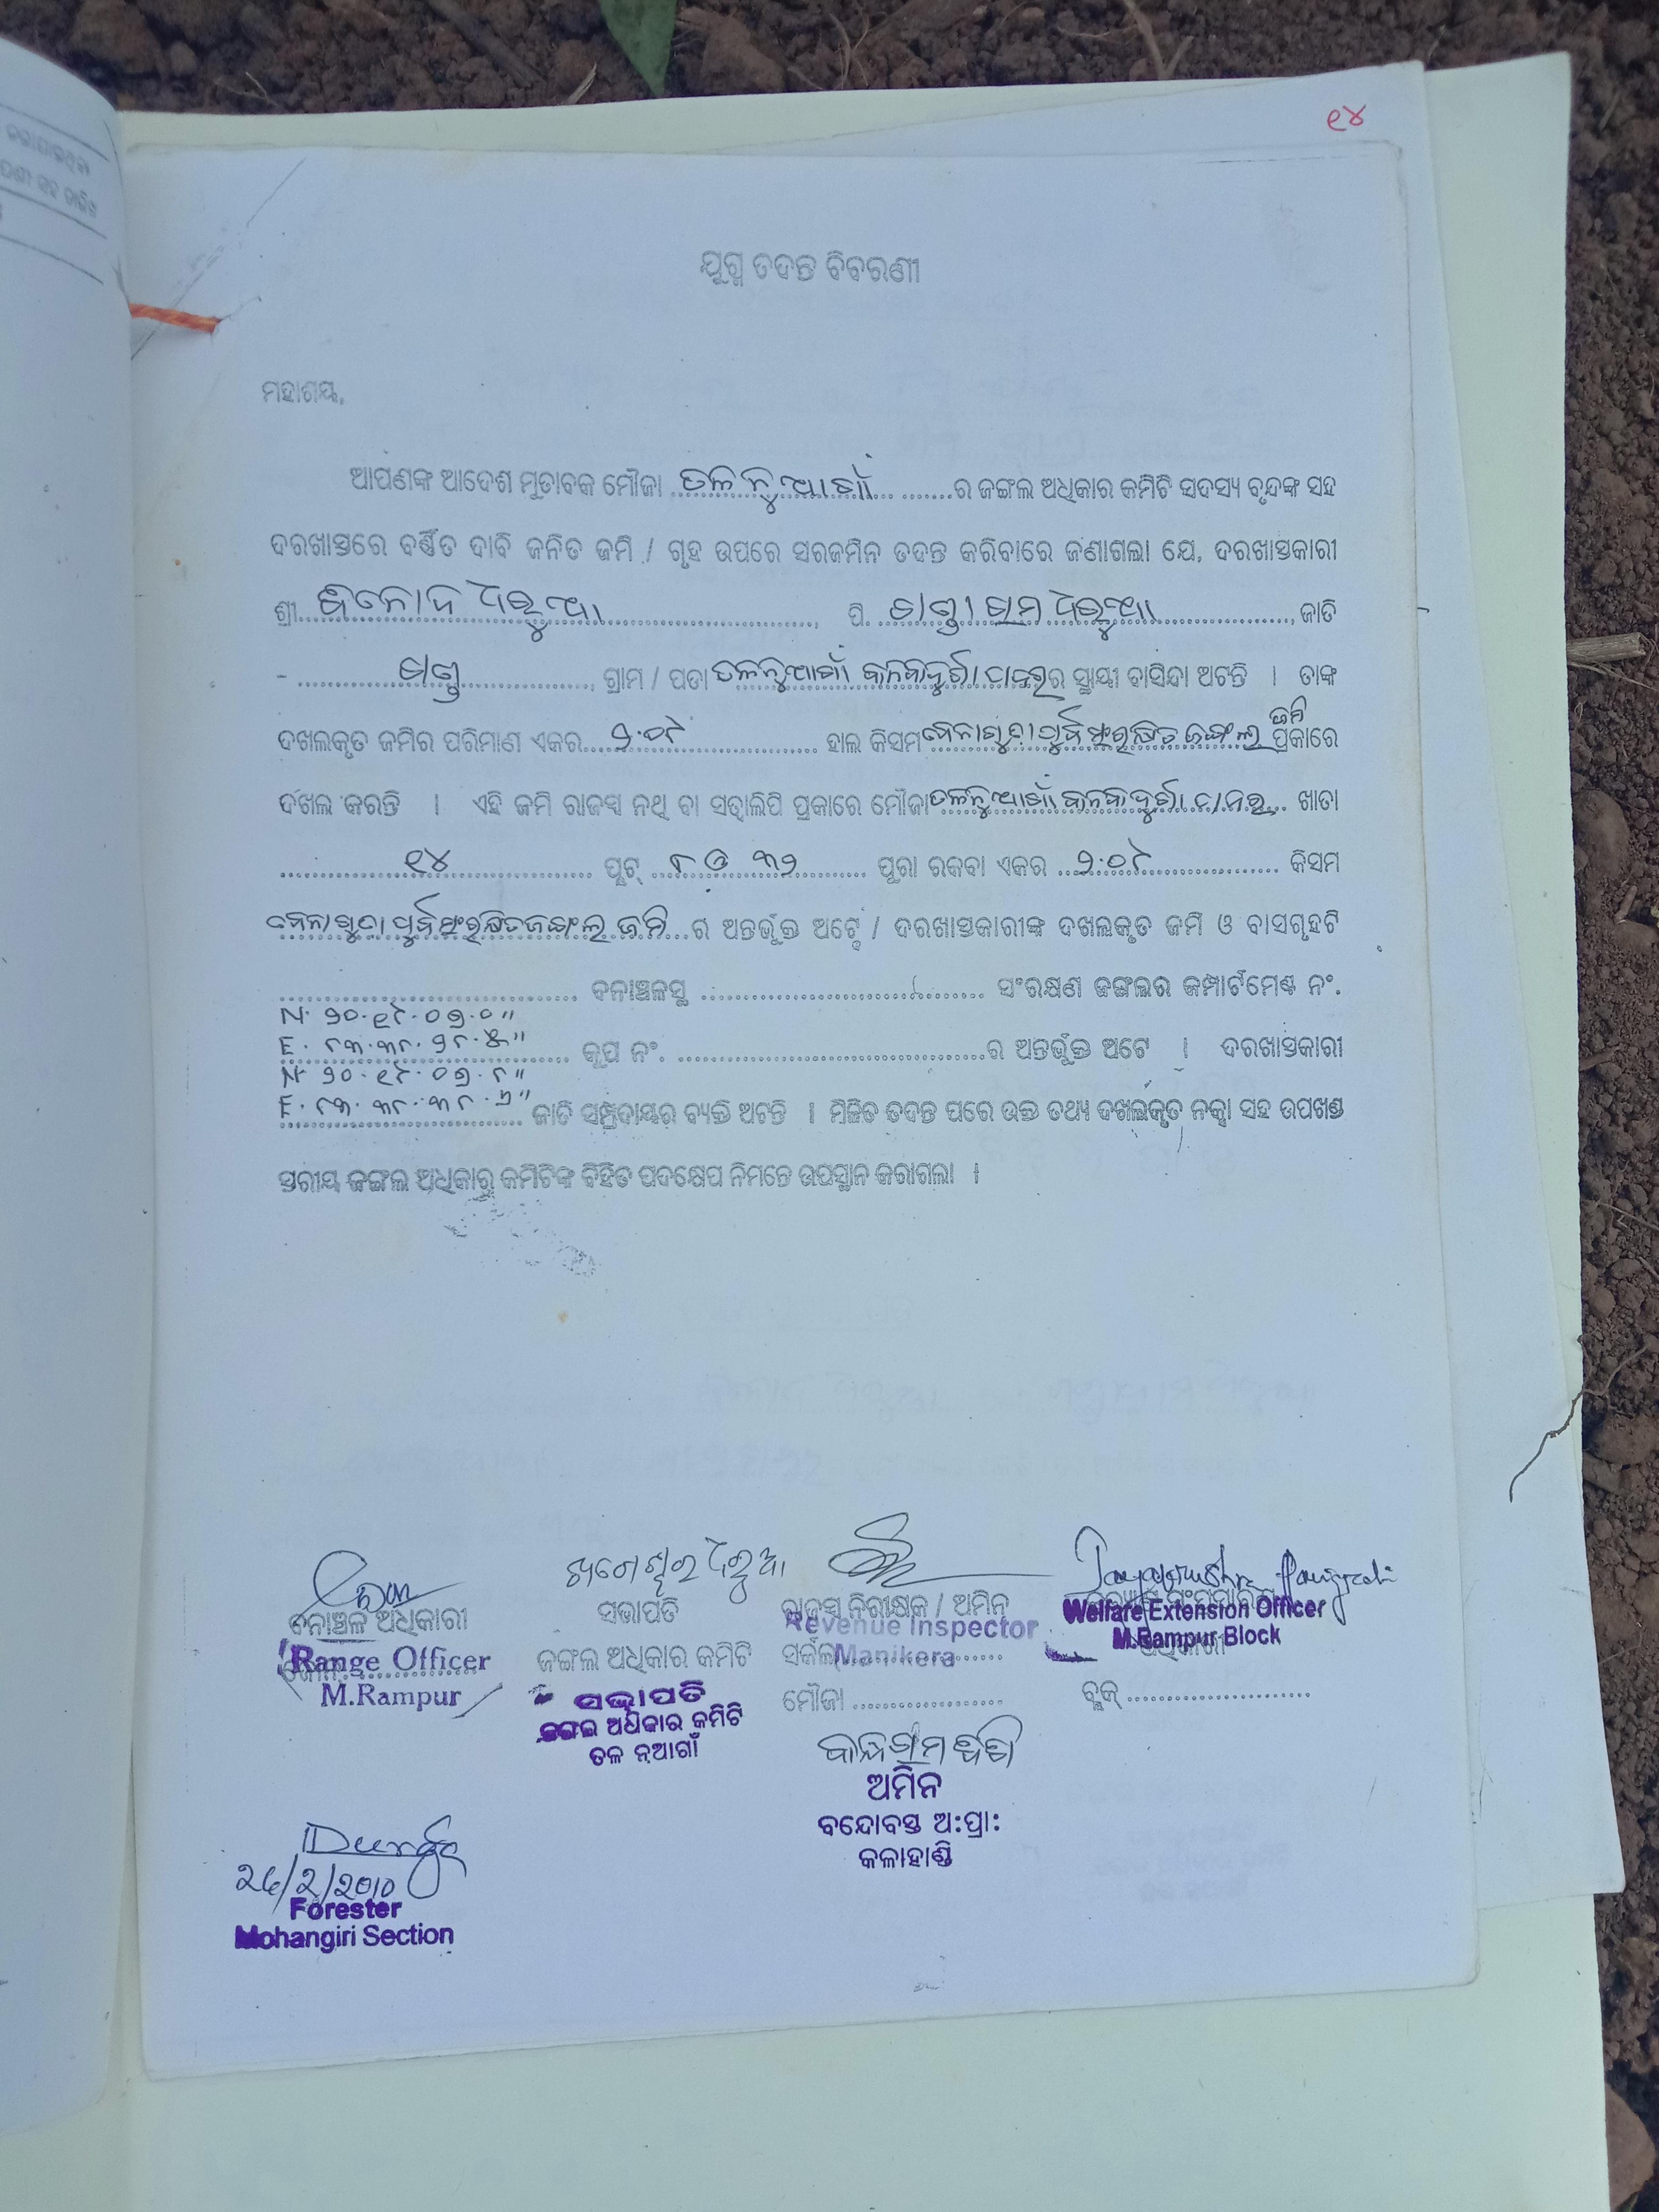 ୧୪
ଯୁଗ୍ମ ତଦନ୍ତ ବିବରଣୀ
ମହାଶୟ,
ଆପଣଙ୍କ ଆଦେଶ ମୁତାବକ ମୌଜା ତଳନୁଆଗାଁ ର ଜଙ୍ଗଲ ଅଧିକାର କମିଟି ସଦସ୍ୟ ବୃନ୍ଦଙ୍କ ସହ
ଦରଖାସ୍ତରେ ବର୍ଣ୍ଣିତ ଦାବି ଜନିତ ଜମି / ଗୃହ ଉପରେ ସରଜମିନ ତଦନ୍ତ କରିବାରେ ଜଣାଗଲା ଯେ, ଦରଖାସ୍ତକାରୀ
ଶ୍ରୀ ବିନୋଦ ଦିରୁଆ, ପି. ଖଣ୍ଡା ରାମ ଦିରୁଆ, ଜାତି
- ଖଣ୍ଡ, ଗ୍ରାମ / ପଡା ତଳନୁଆଗାଁ ର ସ୍ଥାୟୀ ବାସିନ୍ଦା ଅଟନ୍ତି । ତାଙ୍କ
ଦଖଲକୃତ ଜମିର ପରିମାଣ ଏକର ୨.୦୮ ହାଲ କିସମ ପୂର୍ବ ସଂରକ୍ଷିତ ଜଙ୍ଗଲ ଜମି ପ୍ରକାରେ
ଦଖଲ କରନ୍ତି । ଏହି ଜମି ରାଜସ୍ୱ ନଥି ବା ସତ୍ୱଲିପି ପ୍ରକାରେ ମୌଜା ତଳନୁଆଗାଁ ଖାତା
୧୪ ପ୍ଲଟ୍ ୮ ଓ ୩୨ ପୁରା ରକବା ଏକର ୨.୦୮ କିସମ
ପୂର୍ବ ସଂରକ୍ଷିତ ଜଙ୍ଗଲ ଜମି ର ଅନ୍ତର୍ଭୁକ୍ତ ଅଟେ / ଦରଖାସ୍ତକାରୀଙ୍କ ଦଖଲକୃତ ଜମି ଓ ବାସଗୃହଟି
ବନାଞ୍ଚଳସ୍ଥ ସଂରକ୍ଷଣ ଜଙ୍ଗଲର କମ୍ପାର୍ଟମେଣ୍ଟ ନଂ.
N. ୨୦.୧୮.୦୭.୦"
E. ୮୩.୩୮.୨୮.୫" କୂପ ନଂ. ର ଅନ୍ତର୍ଭୁକ୍ତ ଅଟେ । ଦରଖାସ୍ତକାରୀ
N. ୨୦.୧୮.୦୭.୮"
E. ୮୩.୩୮.୩୮.୬" ଜାତି ସମ୍ପ୍ରଦାୟର ବ୍ୟକ୍ତି ଅଟନ୍ତି । ମିଳିତ ତଦନ୍ତ ପରେ ଉକ୍ତ ତଥ୍ୟ ଦଖଲକୃତ ନକ୍ସା ସହ ଉପଖଣ୍ଡ
ସ୍ତରୀୟ ଜଙ୍ଗଲ ଅଧିକାର କମିଟିଙ୍କ ବିହିତ ପଦକ୍ଷେପ ନିମନ୍ତେ ଉପସ୍ଥାନ କରାଗଲା ।
ବନାଞ୍ଚଳ ଅଧିକାରୀ
Range Officer
M.Rampur
ସଭାପତି
ଜଙ୍ଗଲ ଅଧିକାର କମିଟି
ସଭାପତି
ଜଙ୍ଗଲ ଅଧିକାର କମିଟି
ତଳ ନୂଆଗାଁ
ରାଜସ୍ୱ ନିରୀକ୍ଷକ / ଅମିନ
Revenue Inspector
ସର୍କଲ Manikera
ମୌଜା
ଅମିନ
ବନ୍ଦୋବସ୍ତ ଅ:ପ୍ରା:
କଳାହାଣ୍ଡି
Welfare Extension Officer
M.Rampur Block
ବ୍ଲକ୍
26/2/2010
Forester
Mohangiri Section